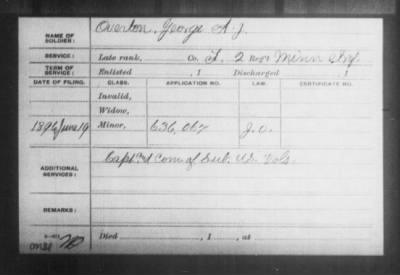 NAME OF SOLDIER: Overton, George A. J.
SERVICE: Late rank, Co. F. 2 Reg't Minn Inf.
TERM OF SERVICE: Enlisted , 1 Discharged , 1
DATE OF FILING. CLASS. APPLICATION NO. LAW. CERTIFICATE NO.
Invalid,
Widow,
1896 June 19 Minor, 636,067 J.O.
ADDITIONAL SERVICES: Capt & Com of Sub. U.S. Vols.
REMARKS:
Died , 1 , at